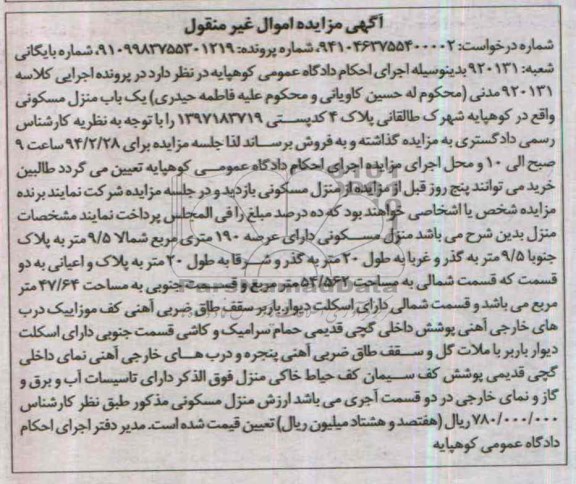 آگهی مزایده اموال غیر منقول
شماره درخواست: ۹۴۱۰۴۶۳۷۵۵۴۰۰۰۰۲، شماره پرونده: ۹۱۰۹۹۸۳۷۵۵۳۰۱۲۱۹، شماره بایگانی
شعبه: ۹۲۰۱۳۱ بدینوسیله اجرای احکام دادگاه عمومی کوهپایه در نظر دارد در پرونده اجرایی کلاسه
۹۲۰۱۳۱ مدنی (محکوم له حسین کاویانی و محکوم علیه فاطمه حیدری) یک باب منزل مسکونی
واقع در کوهپایه شهرک طالقانی پلاک ۴ کدپستی ۱۳۹۷۱۸۳۷۱۹ را با توجه به نظریه کارشناس
رسمی دادگستری به مزایده گذاشته و به فروش برساند لذا جلسه مزایده برای ۹۴/۲/۲۸ ساعت ۹
صبح الی ۱۰ و محل اجرای مزایده اجرای احکام دادگاه عمومی کوهپایه تعیین می گردد طالبین
خرید می توانند پنج روز قبل از مزایده از منزل مسکونی بازدید و در جلسه مزایده شرکت نمایند برنده
مزایده شخص یا اشخاصی خواهند بود که ده درصد مبلغ را فی المجلس پرداخت نمایند مشخصات
منزل بدین شرح می باشد منزل مسکونی دارای عرصه ۱۹۰ متری مربع شمالا ۹/۵ متر به پلاک
جنوبا ۹/۵ متر به گذر و غربا به طول ۲۰ متر به گذر و شرقا به طول ۲۰ متر به پلاک و اعیانی به دو
قسمت که قسمت شمالی به مساحت ۵۳/۵۶۲ متر مربع و قسمت جنوبی به مساحت ۴۷/۶۴ متر
مربع می باشد و قسمت شمالی دارای اسکلت دیوار باربر سقف طاق ضربی آهنی کف موزاییک درب
های خارجی آهنی پوشش داخلی گچی قدیمی حمام سرامیک و کاشی قسمت جنوبی دارای اسکلت
دیوار باربر با ملات گل و سقف طاق ضربی آهنی پنجره و درب های خارجی آهنی نمای داخلی
گچی قدیمی پوشش کف سیمان کف حیاط خاکی منزل فوق الذکر دارای تاسیسات آب و برق و
گاز و نمای خارجی در دو قسمت آجری می باشد ارزش منزل مسکونی مذکور طبق نظر کارشناس
۷۸۰/۰۰۰/۰۰۰ ریال (هفتصد و هشتاد میلیون ریال) تعیین قیمت شده است. مدیر دفتر اجرای احکام
دادگاه عمومی کوهپایه